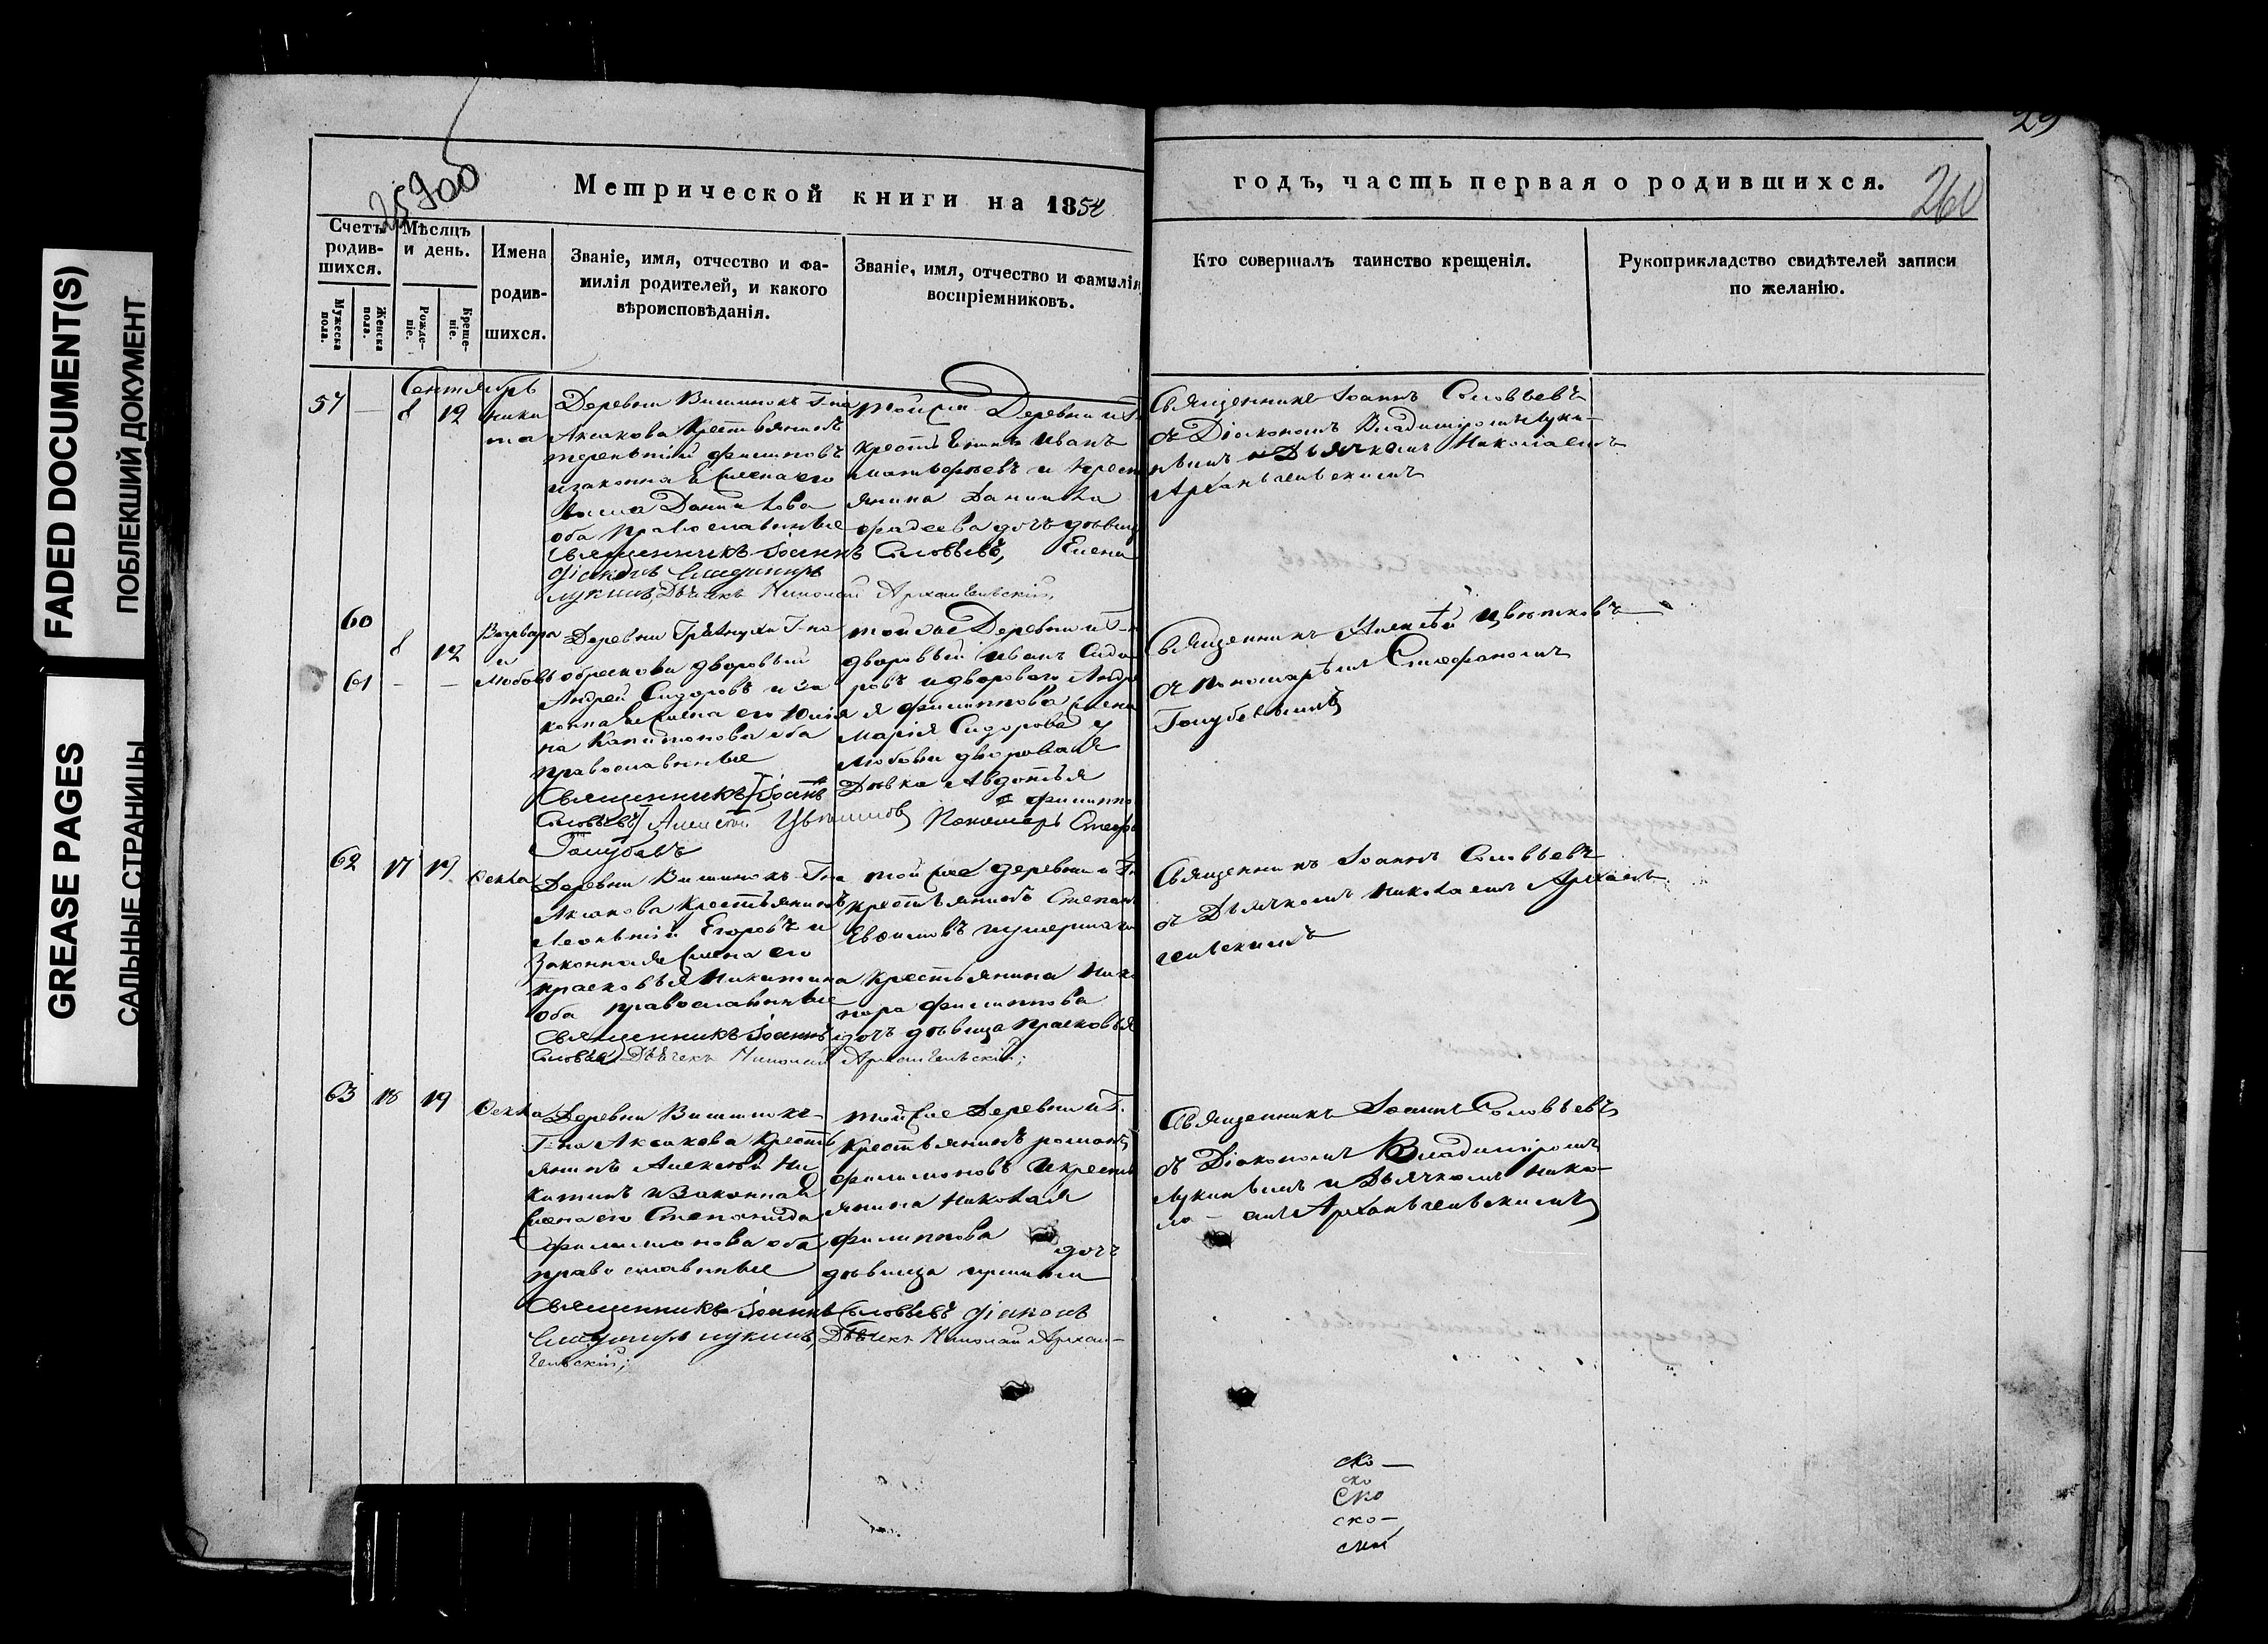 FADED DOCUMENT(S)
ПОБЛЕКШИЙ ДОКУМЕНТ
GREASE PAGES
САЛЬНЫЕ СТРАНИЦЫ
29
260
Метрической книги на 1854
годъ, часть первая о родившихся.
Счетъ родив-шихся.
Мужеска пола.
Женска пола.
Мѣсяцъ и день.
Рожде-ніе.
Креще-ніе.
Имена родив-шихся.
Званіе, имя, отчество и фа-
милія родителей, и какого
вѣроисповѣданія.
Званіе, имя, отчество и фамилія
воспріемниковъ.
Кто совершалъ таинство крещенія.
Рукоприкладство свидѣтелей записи
по желанію.
Сентябрь
57 — 8 12 Ники
та
Деревни Вишнокъ Г-на
Аксакова Крестьянинъ
терентій филиповъ
и законная жена его
Данилова
оба православные
Священникъ Іоаннъ Соловьевъ,
діаконъ Владимиръ
лукинъ, Дьячекъ Николай Архангельскій;
той же Деревни и Г-
крестьянинъ Иванъ
матвѣевъ и Крест
янина Данила
фадеева дочь дѣвица
Елена
Священникъ Іоаннъ Соловьевъ
съ Діакономъ Владиміромъ Луки-
нымъ и Дьячкомъ Николаемъ
Архангельскимъ
60 8 12 Варвара
и
61 — — Любовь
Деревни Г-на
обрескова дворовый
Андрей Сидоровъ и за
конная жена его Юлія
на Капитонова оба
православные
Священникъ Іоаннъ
Соловьевъ Алексій Цвѣтковъ Пономарь Стефанъ
Голубевъ
той же Деревни и Г-на
дворовый Иванъ Сидо
ровъ и двороваго Андре
я филиппова жена
Марія Сидорова у
Любови дворовая
Дѣвка Авдотья
филиппо
Священникъ Алексѣй Цвѣтковъ
съ пономаремъ Стефаномъ
Голубевымъ
62 17 19 Фекла
Деревни Вишнокъ Г-на
Аксакова крестьянинъ
Леонтій Егоровъ и
Законная жена его
прасковья Никитина
оба православные
Священникъ Іоаннъ
Соловьевъ Дьячекъ Николай Архангельскій;
той же деревни и Г-
крестьянинъ Степанъ
крестьянина Ника
нора филиппова
дочь дѣвица прасковья
Священникъ Іоаннъ Соловьевъ
съ Дьячкомъ Николаемъ Архан
гельскимъ
63 18 19 Фекла
Деревни Вишнокъ
Г-на Аксакова Кресть
янинъ Алексѣй Ни
китинъ и Законная
жена его Степанида
филимонова оба
православные
Священникъ Іоаннъ Соловьевъ діаконъ
Владимиръ лукинъ, Дьячекъ Николай Архан-
гельскій;
той же Деревни и Г.
Крестьянинъ романъ
филимоновъ и крестья
янина Николая
филиппова дочь
дѣвица
Священникъ Іоаннъ Соловьевъ
съ Діакономъ Владиміромъ
Лукинымъ и Дьячкомъ Нико-
ла- емъ Архангельскимъ